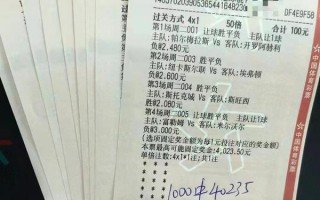 140370203905365441648​23
DF4E9F5B
过关方式 4x1 50倍 合计 100元
第1场周二001 让球胜平负 主队让1球
主队:帕尔梅拉斯 Vs 客队:开罗阿赫利
负@2.480元
第2场周二003 胜平负
主队:纽卡斯尔联 Vs 客队:埃弗顿
负@2.600元
第3场周二004 胜平负
主队:斯托克城 Vs 客队:斯旺西
胜@2.080元
第4场周二005 让球胜平负 主队让1球
主队:富勒姆 Vs 客队:米尔沃尔
负@3.000元
(选项固定奖金额为每1元投注对应的奖金额)
本票最高可能固定奖金:4,023.50元
单倍注数:4x1*1注;共1注
1000中40235
中国体育彩票
中国体育彩票